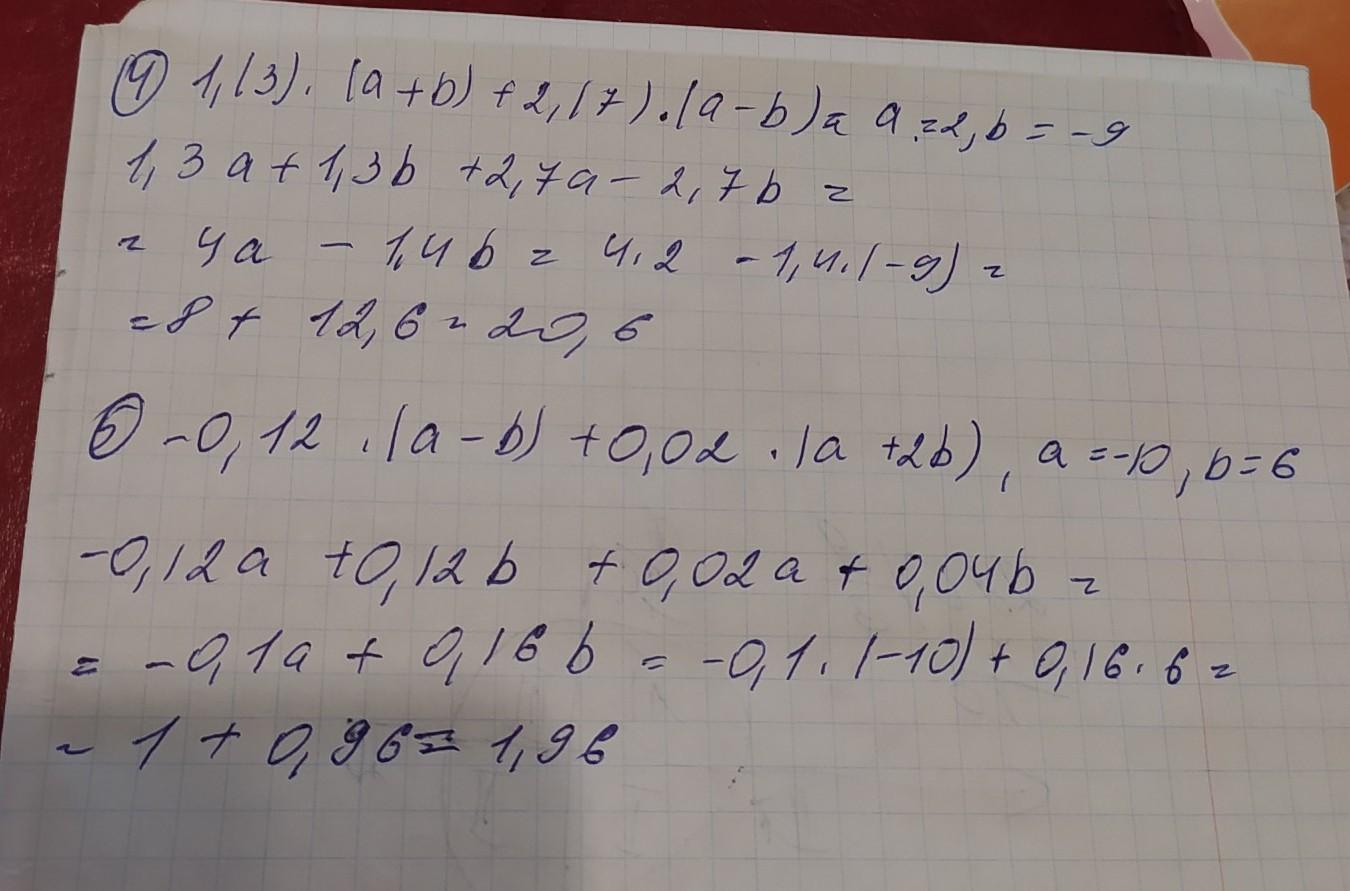 ④ 1,(3) · (a+b) + 2,(7) · (a-b) = a = 2, b = -9
1,3a + 1,3b + 2,7a - 2,7b =
= 4a - 1,4b = 4·2 - 1,4·(-9) =
= 8 + 12,6 = 20,6
⑤ -0,12 · (a-b) + 0,02 · (a+2b), a = -10, b = 6
-0,12a + 0,12b + 0,02a + 0,04b =
= -0,1a + 0,16b = -0,1 · (-10) + 0,16·6 =
= 1 + 0,96 = 1,96